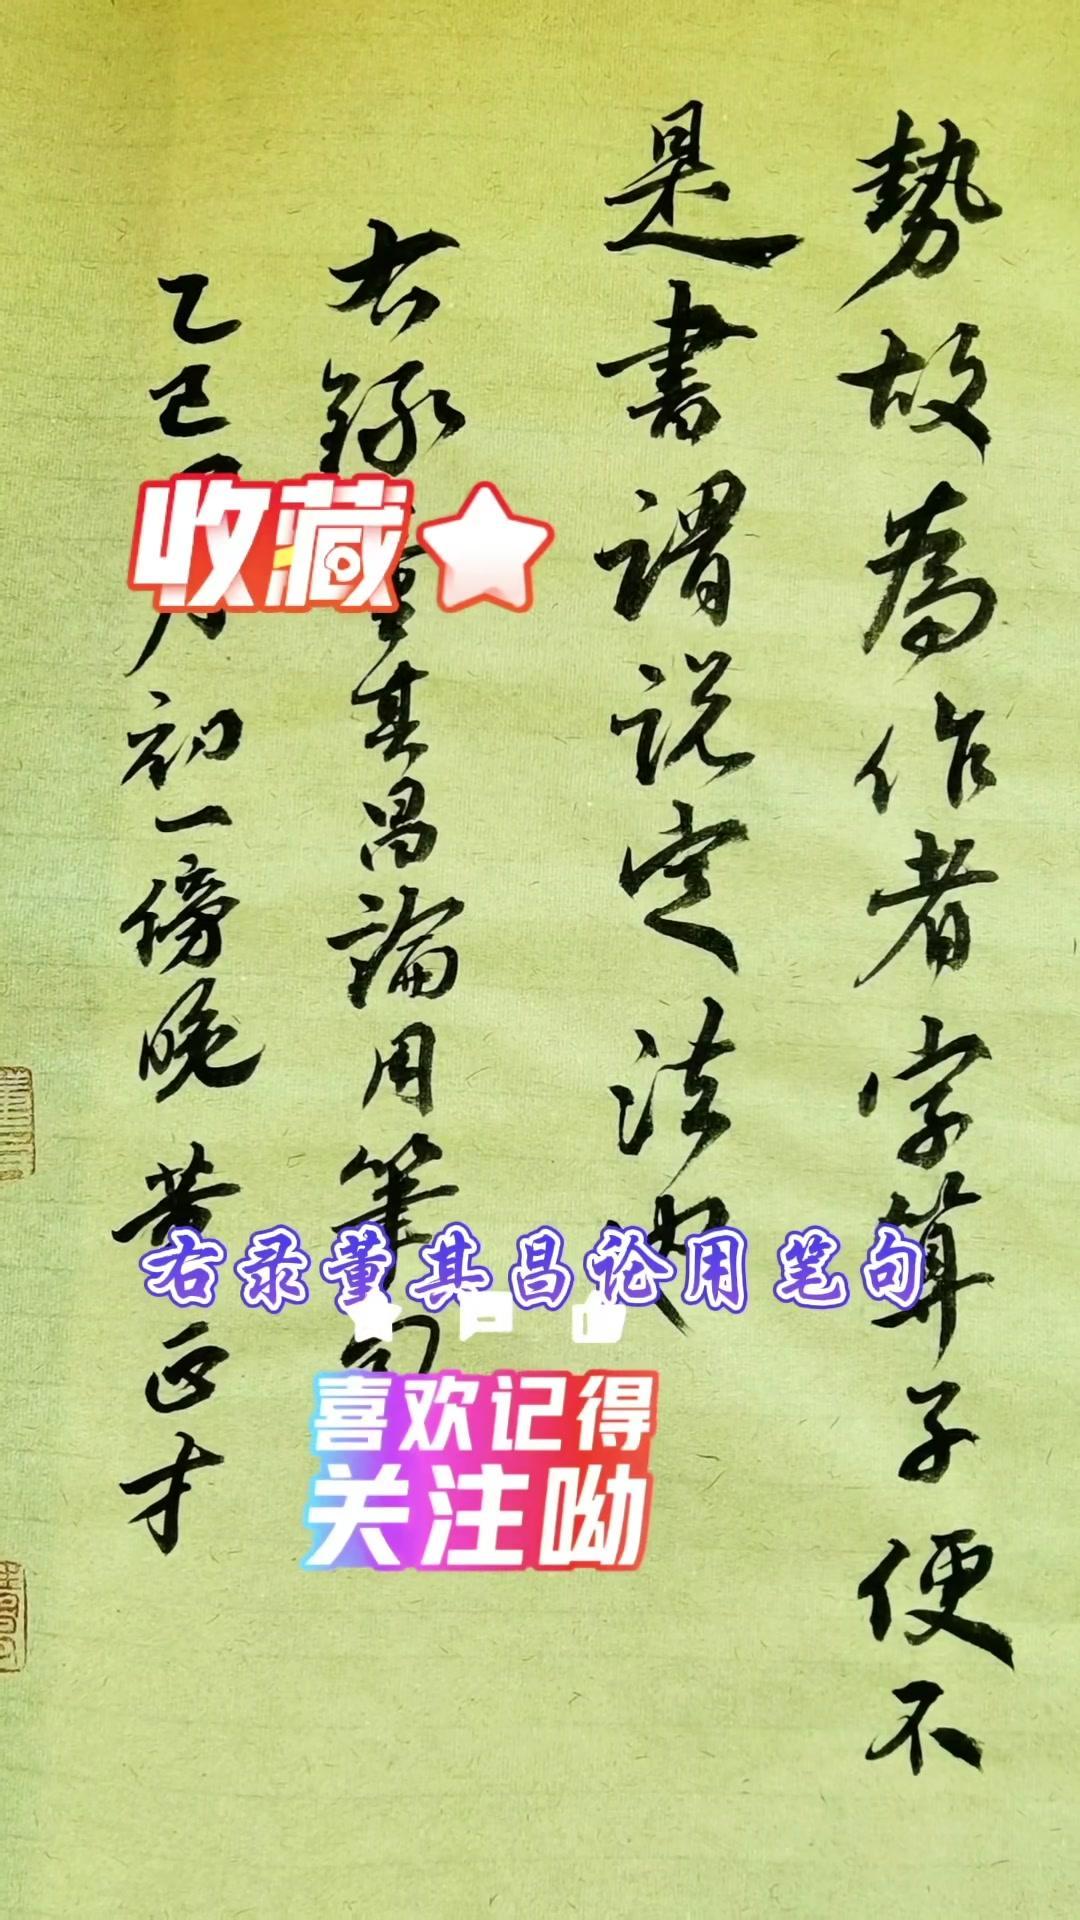 勢故為作者字算子便不
是書謂說定法也
右録董其昌論用筆句
乙巳 月初一傍晚 黄正才
收藏
右录董其昌论用笔句
喜欢记得
关注呦